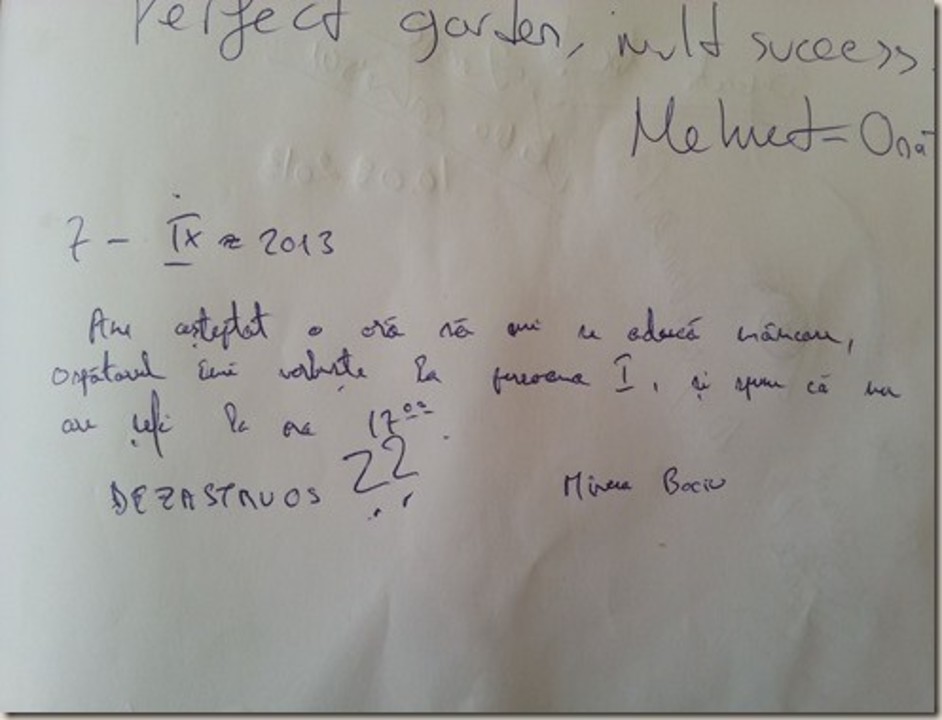 Perfect garden, mult success.
Mehmet = Ona
7 - IX = 2013
Am așteptat o oră să mi se aducă mâncare,
ospătarul îmi vorbește la persoana I, și spune că nu
are șefi la ora 17⁰⁰.
DEZASTRUOS ??
Mircea Bociu